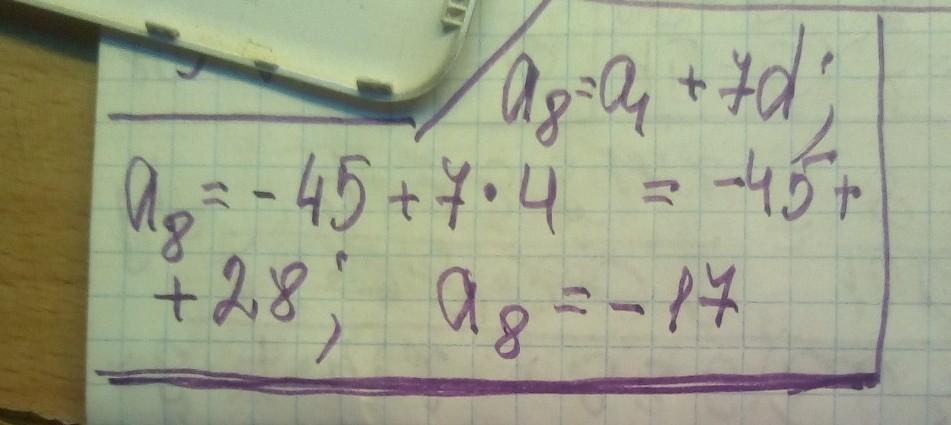 a₈ = a₁ + 7d;
a₈ = - 45 + 7 · 4 = -45 +
+ 28; a₈ = - 17